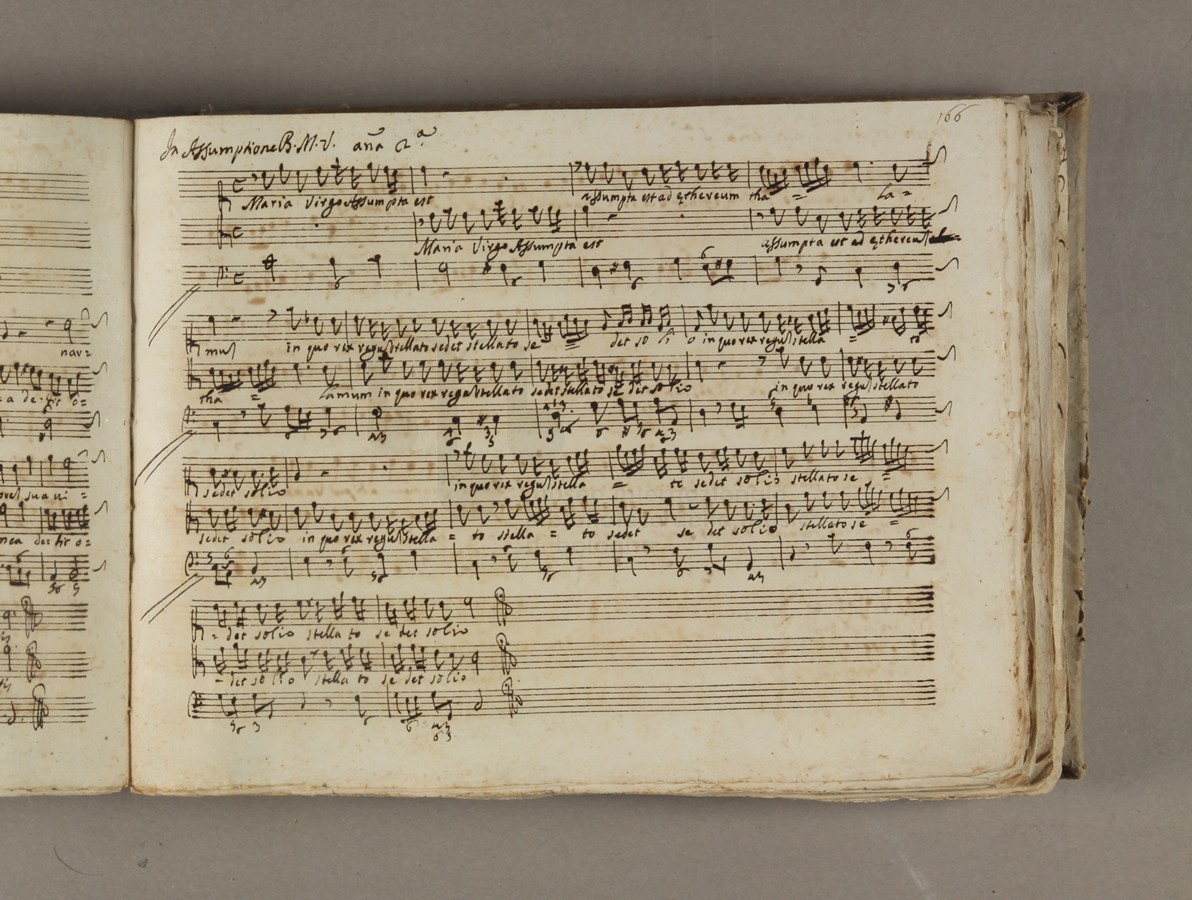 166
In Assumptione B. M. V. aña 2ª
Maria Virgo Assumpta est assumpta est ad ęthereum tha = la =
Maria Virgo Assumpta est assumpta est ad ethereu
mus in quo rex regu stellato sedet stellato se = det so li o in quo rex regu stella = to
tha = lamum in quo rex regu stellato sedet stellato se det solio in quo rex regu stellato
sedet solio in quo rex regu stella = te sedet solio stellato se =
sedet solio in quo rex regu stella = to stella = to sedet se det solio stellato se =
= det solio stella to se det solio
- det so li o stella to se det solio
nav=
a de. fir o=
sua vi =
nea det fir o=